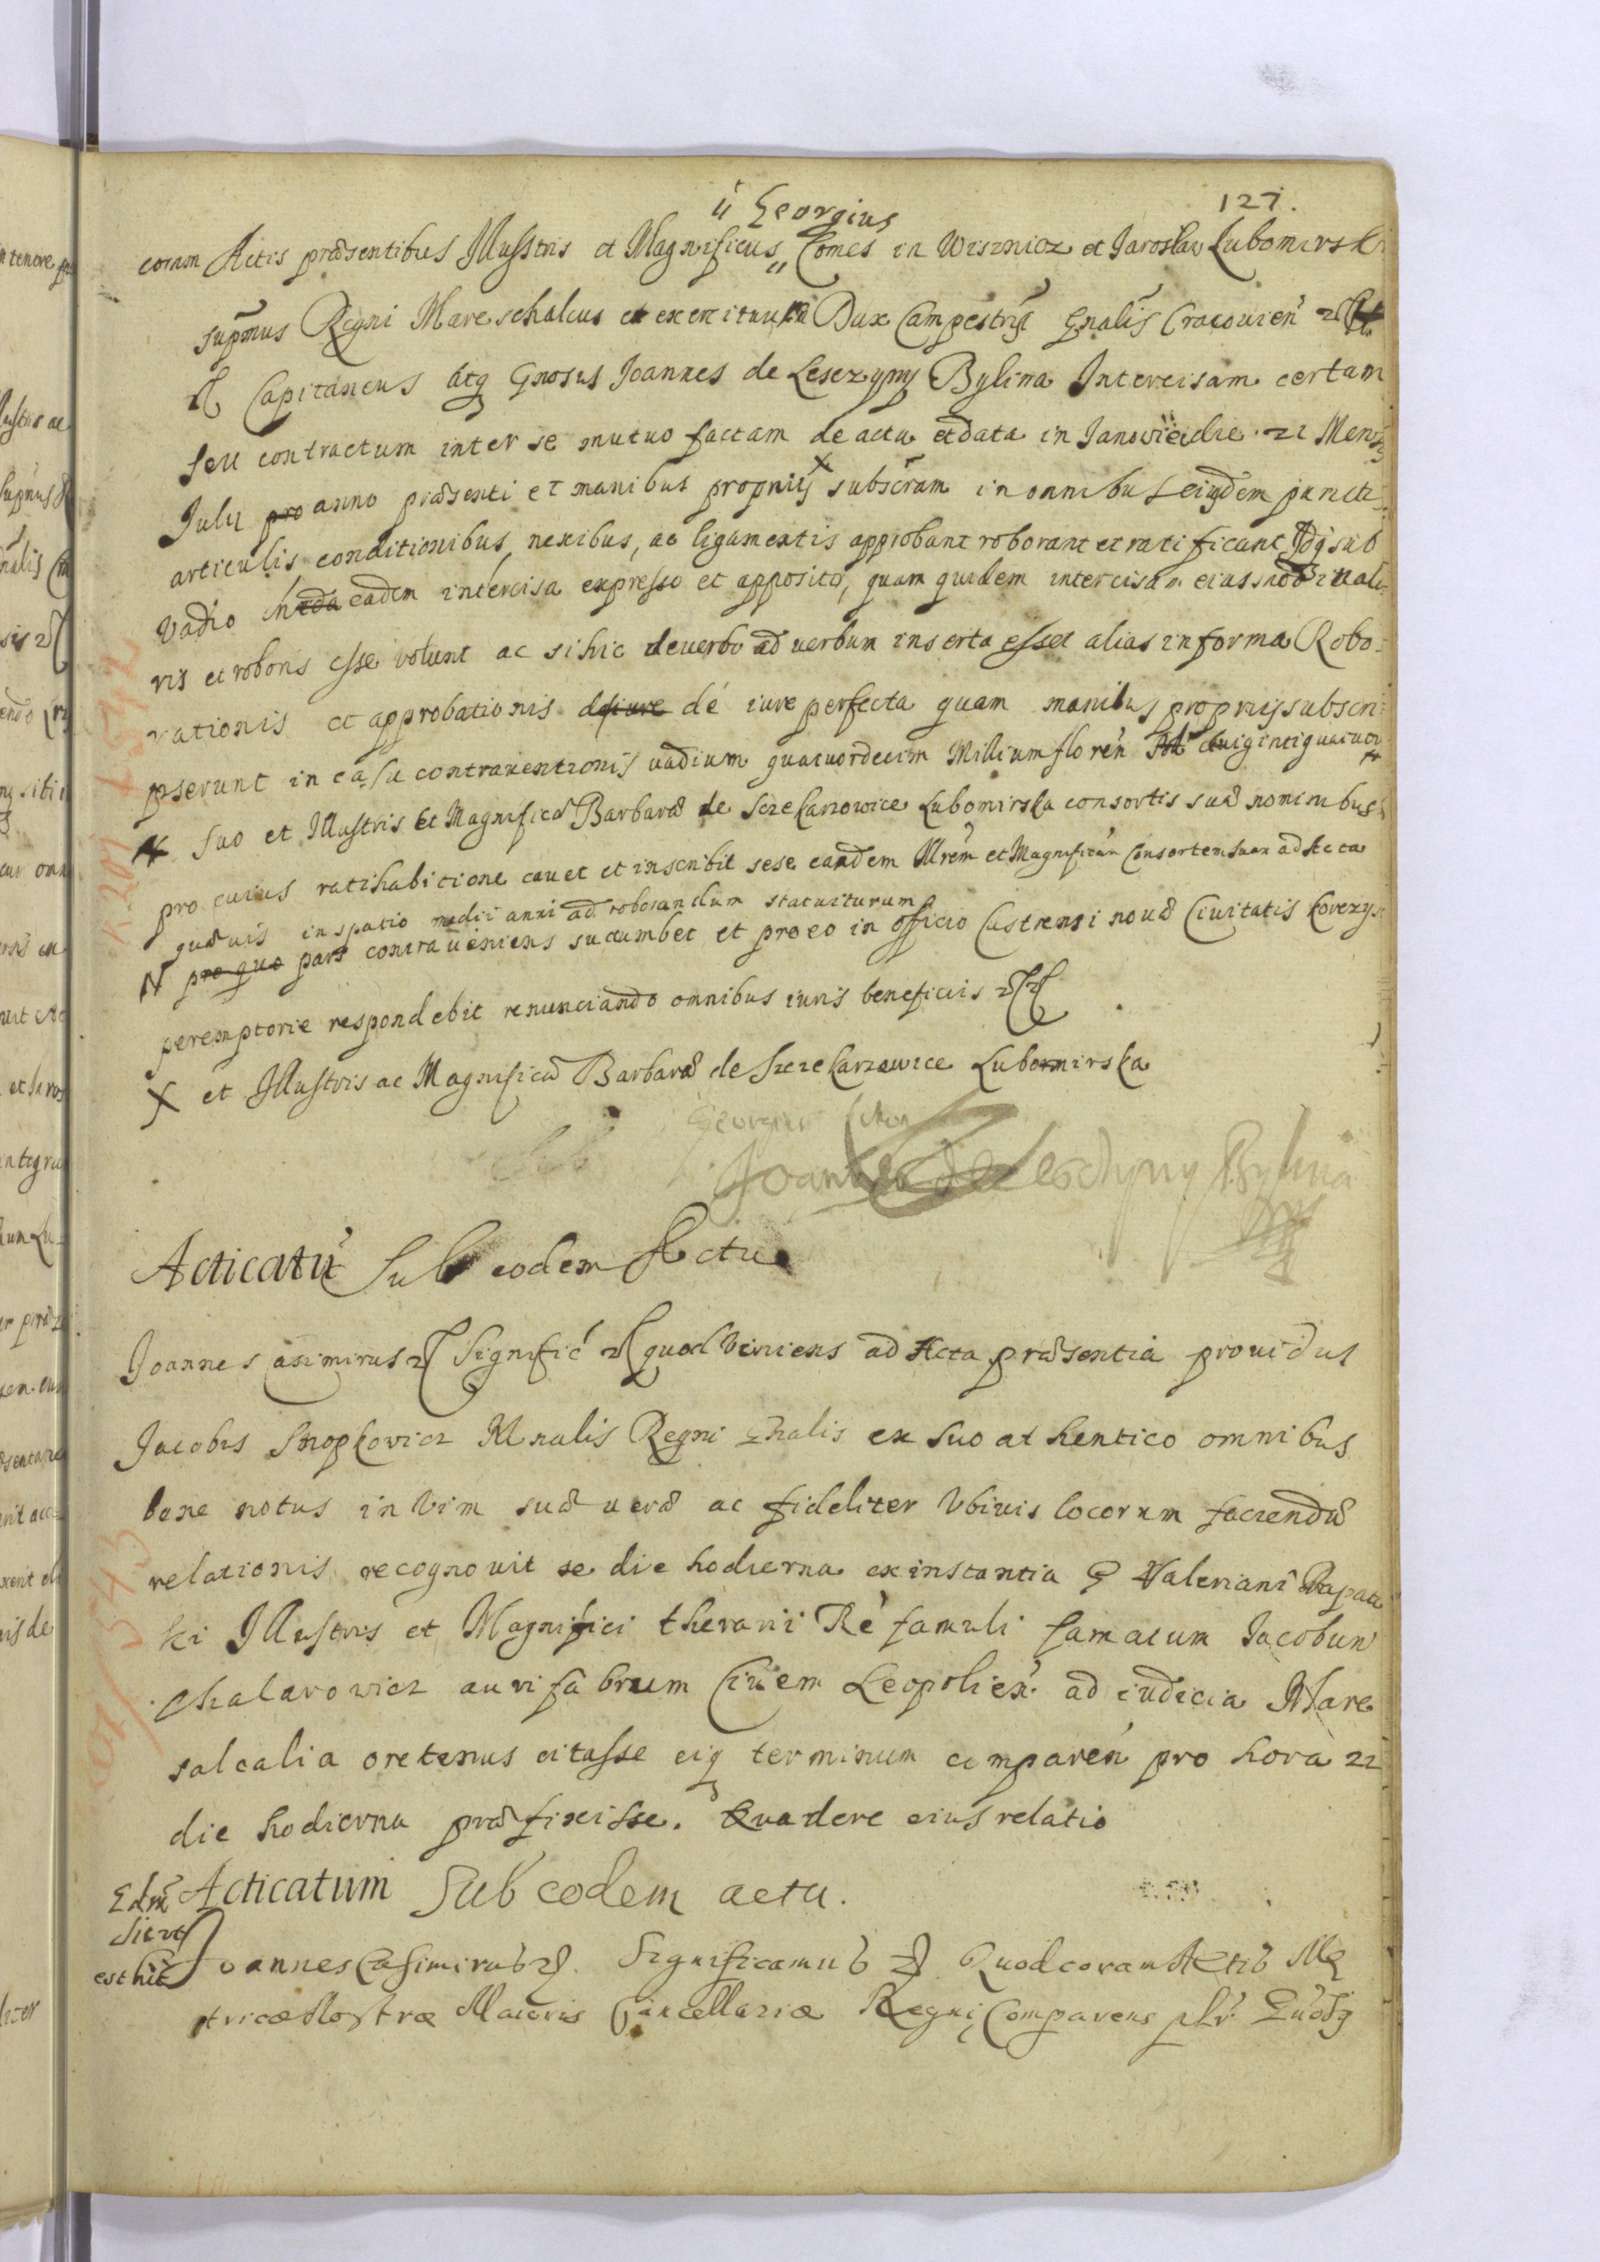 127.
Georgius
coram Actis præsentibus Illustris et Magnificus Comes in Wisznicz et Jaroslaw Lubomirsk
supmus Regni Mareschalcus et exercituum Dux Campestris Gnalis Cracouien
Capitaneus atq Gnosus Joannes de Lesczyny Bylina Intercisam certam
seu contractum inter se mutuo factam de actu et data in Janowiec die 21 Mensis
July pro anno præsenti et manibus proprijs subscram in omnibus eiusdem punctis
articulis conditionibus, nexibus, ac ligamentis approbant roborant et ratificant Idq sub
Vadio in eadem intercisa expresso et apposito, quam quidem intercisam eiusmodi valo
ris et roboris esse volunt ac si hic de verbo ad verbum inserta esset alias in forma Robo
rationis et approbationis de iure de iure perfecta quam manibus proprijs subscri
pserunt in casu contrauentionis vadium quatuordecim Millium floren
suo et Illustris et Magnificæ Barbaræ de Szczekarzowice Lubomirska consortis suæ nominibus
pro cuius ratihabitione cauet et inscribit sese eandem Illrem et Magnificam Consortem suam ad Acta
quæuis in spatio medii anni ad roborandum statuiturum
N pro quo pars contraueniens sucumbet et pro eo in officio Castrensi nouæ Ciuitatis Korczyn
peremptorie respondebit renunciando omnibus iuris beneficiis
X et Illustris ac Magnificæ Barbaræ de Szczekarzowice Lubomirska
Georgius
Joannes de Leschyny Bylina
Acticatu Sub eodem Actu
Joannes Casimirus Signific quod Veniens ad Acta præsentia prouidus
Jacobus Snopkovicz Mnalis Regni Gnalis ex suo athentico omnibus
bene notus in Vim suæ ueræ ac fideliter Vbiuis locorum faciendæ
relationis recognouit se die hodierna ex instantia G Valeriani
ki Illustris et Magnifici therarii Re famuli famatum Jacobum
Chalarowicz aurifabrum Ciuem Leopolien ad iudicia Mare
salcalia oretenus citasse eiq terminum comparen pro hora 22
die hodierna præfixisse. Quadere eius relatio
Acticatum Sub eodem actu.
est hic
Joannes Casimirus Significamus Quod coram Actis Me
tricæ Nostræ Maioris Cancellariæ Regni Comparens